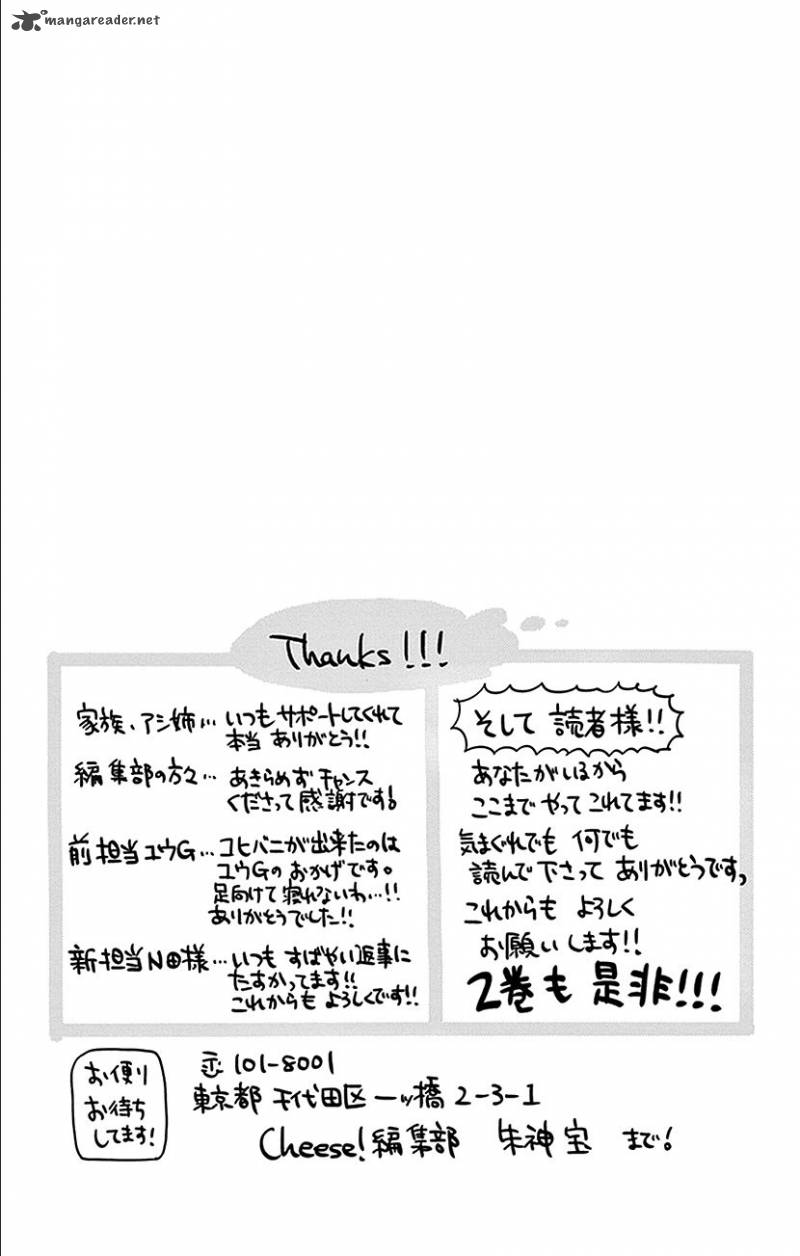 mangareader.net
Thanks!!!
家族、アシ姉… いつもサポートしてくれて
本当 ありがとう!!
編集部の方々… あきらめず チャンス
くださって感謝です!
前担当ユウG… コヒバニが出来たのは
ユウGの おかげです。
足向けて 寝れないわ…!!
ありがとうでした!!
新担当N田様… いつも すばやい返事に
たすかってます!!
これからも よろしくです!!
そして 読者様!!
あなたがいるから
ここまで やって これてます!!
気まぐれでも 何でも
読んで下さって ありがとうです。
これからも よろしく
お願いします!!
2巻も 是非!!!
お便り
お待ち
してます!
〒101-8001
東京都 千代田区 一ッ橋 2-3-1
Cheese!編集部 朱神宝 まで!